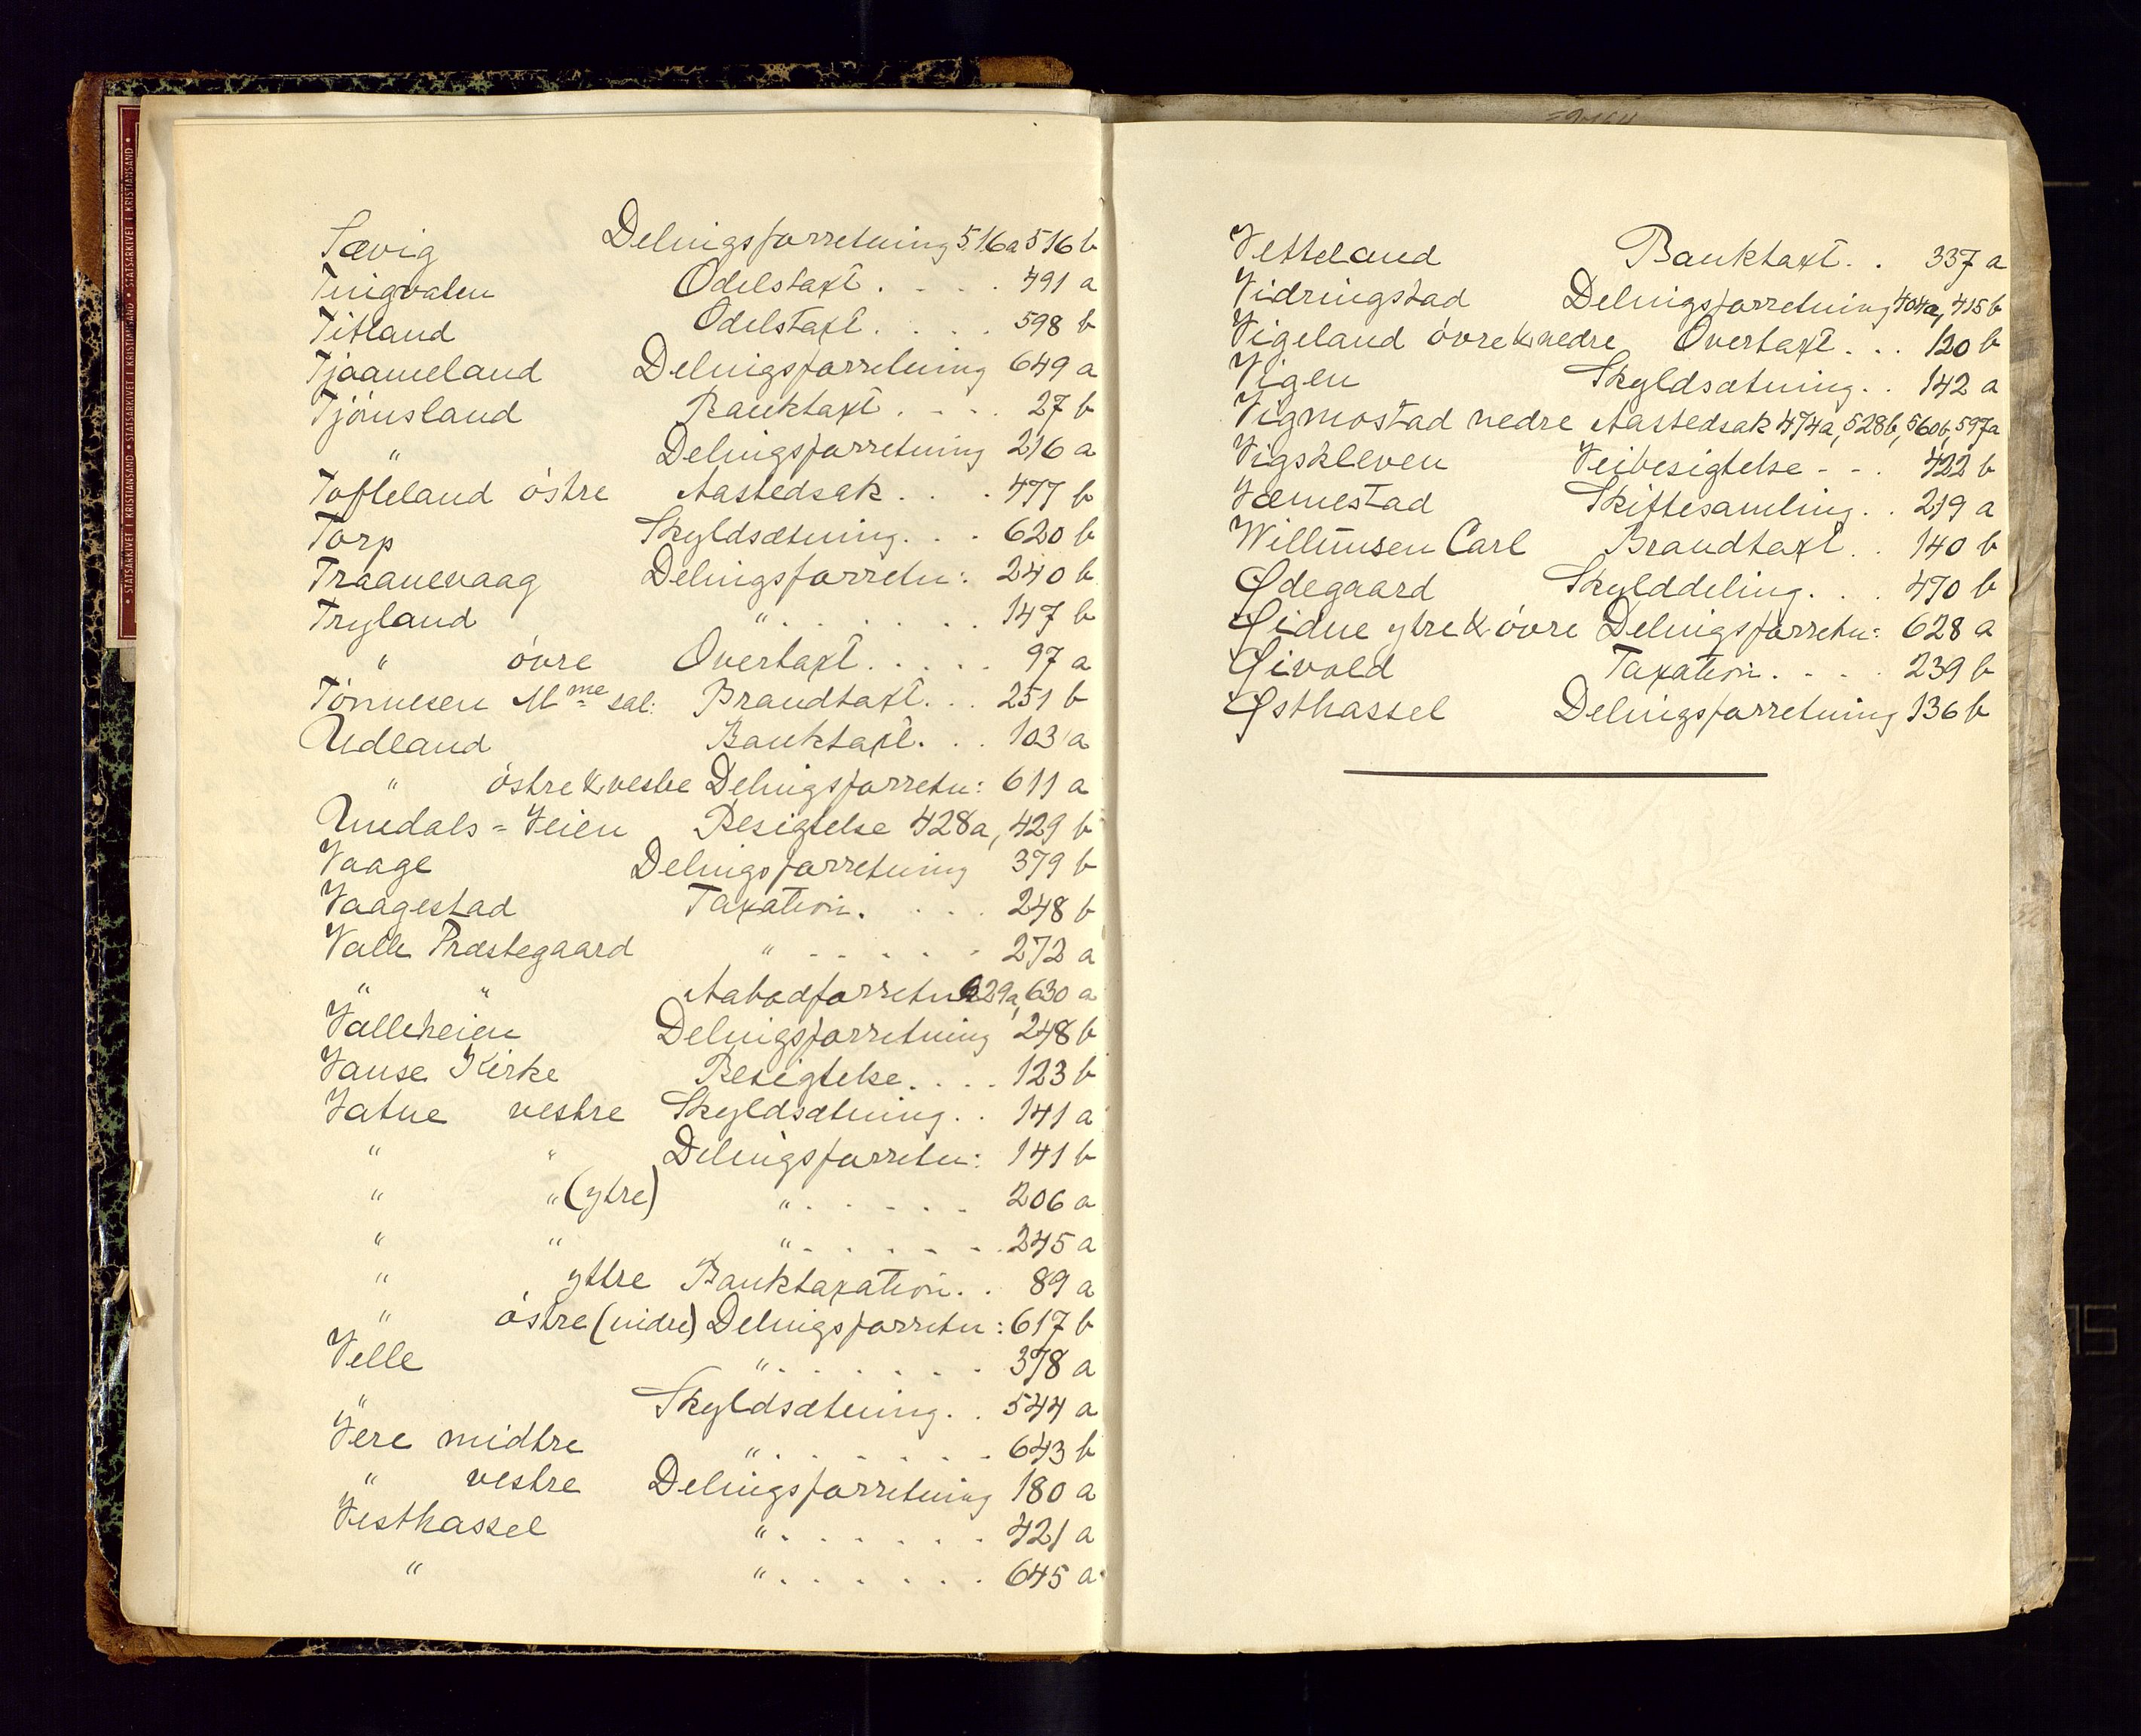 STATSARKIVET I KRISTIANSAND • STATSARKIVET I KRISTIANSAND • STATSARKIVET I KRISTIANSAND •
Sævig Delingsforretning 516a 516 b
Tingvaten Odelstaxt . . . . 491 a
Titland Odelstaxt . . . . 598 b
Tjaameland Delingsforretning 649 a
Tjönsland Banktaxt . . . . 27 b
" Delingsforretning 216 a
Tofteland östre Aastedsak . . . 477 b
Torp Skyldsætning . . . 620 b
Traanevaag Delingsforretn: 240 b
Tryland " . . . . . . 147 b
" övre Overtaxt . . . . . 97 a
Tönnesen Mme sal: Brandtaxt . . . 251 b
Udland Banktaxt . . . 103 a
" östre & vestre Delingsforretn: 611 a
Undals = Veien Besigtelse 428a, 429 b
Vaage Delingsforretning 379 b
Vaagestad Taxation . . . . 248 b
Valle Præstegaard " . . . . . 272 a
" " Aabodforretn 629a, 630 a
Valleheien Delingsforretning 248 b
Vanse Kirke Besigtelse . . . . 123 b
Vatne vestre Skyldsætning . . 141 a
" " Delingsforretn: 141 b
" " (ytre) " . . . . . 206 a
" " " . . . . . . 245 a
" yttre Banktaxation . . 89 a
" östre (indre) Delingsforretn: 617 b
Velle " . . . . . . 378 a
" Skyldsætning . . 544 a
Vere midtre " . . . . . . 643 b
" vestre Delingsforretning 180 a
Vesthassel " . . . . . . 421 a
" " . . . . . . 645 a
Vetteland Banktaxt . . 337 a
Vidringstad Delingsforretning 404a, 415 b
Vigeland övre & nedre Overtaxt . . . 120 b
Vigen Skyldsætning . . 142 a
Vigmostad nedre Aastedsak 474a, 528b, 560b, 597a
Vigskleven Veibesigtelse - - . 422 b
Væmestad Skiftesamling . . 219 a
Willumsen Carl Brandtaxt . . 140 b
Ødegaard Skylddeling . . . 470 b
Øidne ytre & övre Delingsforretn: 628 a
Øivold Taxation . . . . 239 b
Østhassel Delingsforretning 136 b